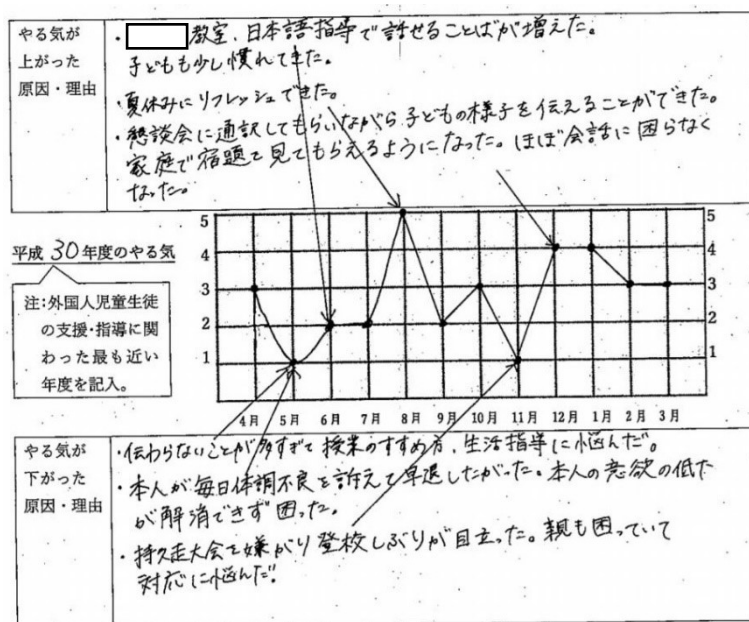 やる気が
上がった
原因・理由
・教室、日本語指導で話せることばが増えた。
子どもも少し慣れてきた。
・夏休みにリフレッシュできた。
・懇談会に通訳してもらいながら子どもの様子を伝えることができた。
家庭で宿題を見てもらえるようになった。ほぼ会話に困らなく
なった。
平成30年度のやる気
注:外国人児童生徒
の支援・指導に関
わった最も近い
年度を記入。
5 5
4 4
3 3
2 2
1 1
4月 5月 6月 7月 8月 9月 10月 11月 12月 1月 2月 3月
やる気が
下がった
原因・理由
・伝わらないことが多すぎて授業のすすめ方、生活指導に悩んだ。
・本人が毎日体調不良を訴えて早退したがった。本人の意欲の低下
が解消できず困った。
・持久走大会を嫌がり登校しぶりが目立った。親も困っていて
対応に悩んだ。